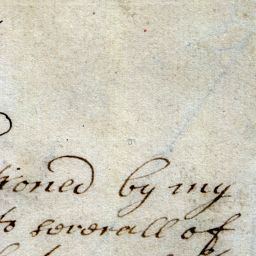 tioned by my
to severall of